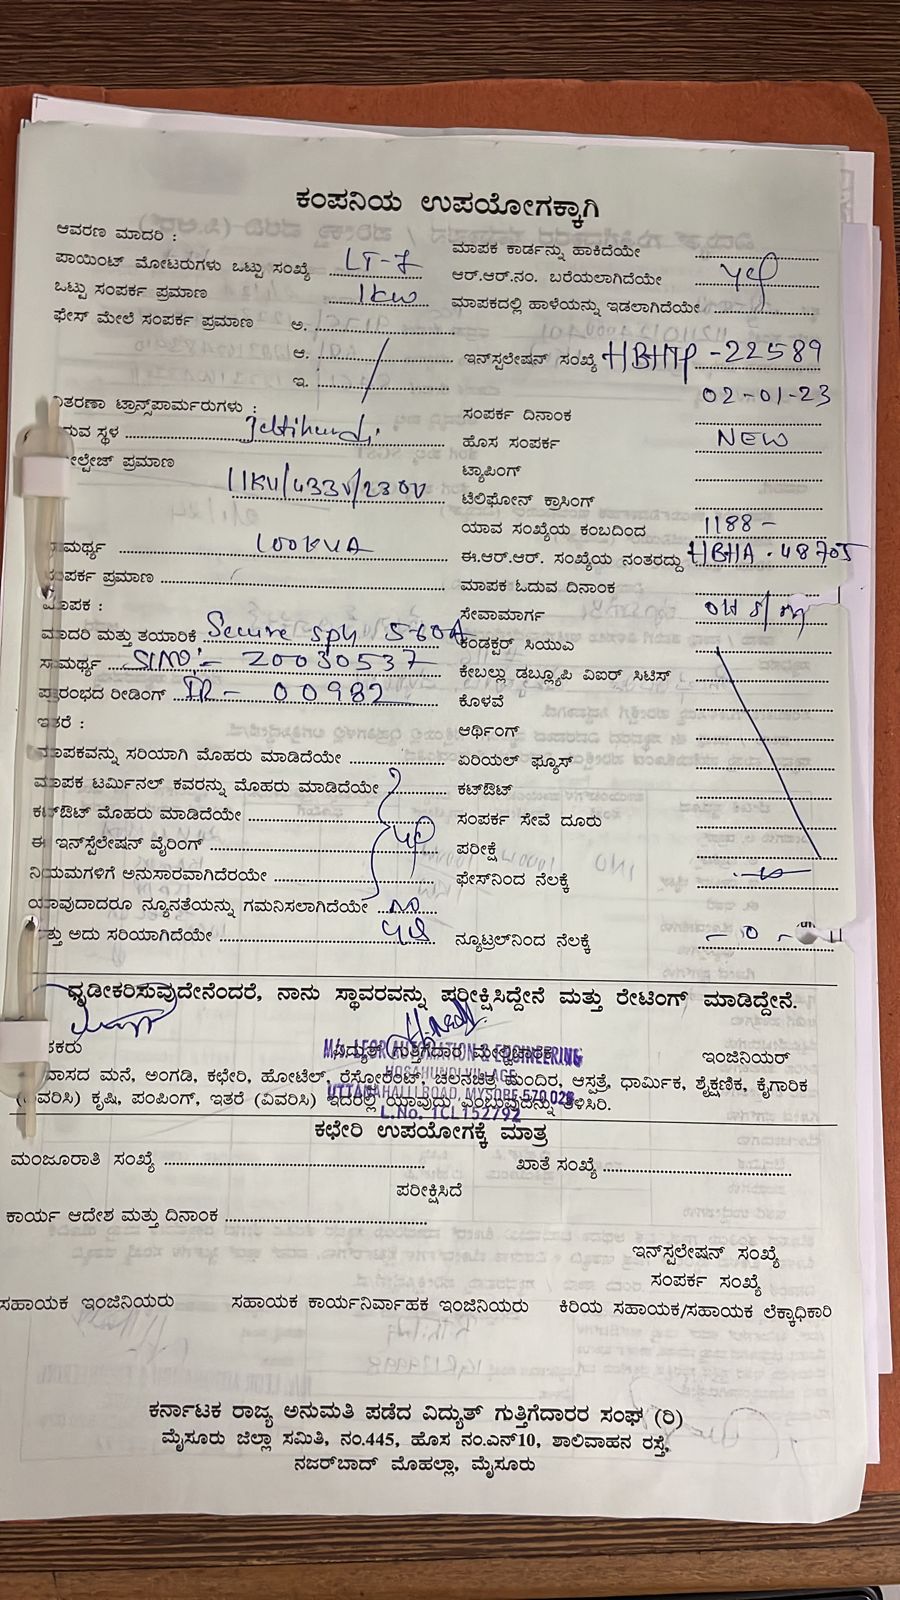 ಕಂಪನಿಯ ಉಪಯೋಗಕ್ಕಾಗಿ
ಆವರಣ ಮಾದರಿ :
ಪಾಯಿಂಟ್ ಮೋಟರುಗಳು ಒಟ್ಟು ಸಂಖ್ಯೆ LT-7
ಒಟ್ಟು ಸಂಪರ್ಕ ಪ್ರಮಾಣ 1KW
ಫೇಸ್ ಮೇಲೆ ಸಂಪರ್ಕ ಪ್ರಮಾಣ ಅ.
ಆ.
ಇ.
ವಿತರಣಾ ಟ್ರಾನ್ಸ್‌ಪಾರ್ಮರುಗಳು :
ರುವ ಸ್ಥಳ Jettihundi
ಲ್ಟೇಜ್ ಪ್ರಮಾಣ 11KV/433V/230V
ಸಾಮರ್ಥ್ಯ 100KVA
ಸಂಪರ್ಕ ಪ್ರಮಾಣ
ಮಾಪಕ :
ಮಾದರಿ ಮತ್ತು ತಯಾರಿಕೆ Secure sph 560A
ಸಾಮರ್ಥ್ಯ Sl NO:- 20030537
ಪ್ರಾರಂಭದ ರೀಡಿಂಗ್ IR - 00982
ಇತರೆ :
ಮಾಪಕವನ್ನು ಸರಿಯಾಗಿ ಮೊಹರು ಮಾಡಿದೆಯೇ
ಮಾಪಕ ಟರ್ಮಿನಲ್ ಕವರನ್ನು ಮೊಹರು ಮಾಡಿದೆಯೇ
ಕಟ್‌ಔಟ್ ಮೊಹರು ಮಾಡಿದೆಯೇ
ಈ ಇನ್‌ಸ್ಟಲೇಷನ್ ವೈರಿಂಗ್
ನಿಯಮಗಳಿಗೆ ಅನುಸಾರವಾಗಿದೆರಯೇ
ಯಾವುದಾದರೂ ನ್ಯೂನತೆಯನ್ನು ಗಮನಿಸಲಾಗಿದೆಯೇ
ಮತ್ತು ಅದು ಸರಿಯಾಗಿದೆಯೇ
ಮಾಪಕ ಕಾರ್ಡನ್ನು ಹಾಕಿದೆಯೇ
ಆರ್.ಆರ್.ನಂ. ಬರೆಯಲಾಗಿದೆಯೇ
ಮಾಪಕದಲ್ಲಿ ಹಾಳೆಯನ್ನು ಇಡಲಾಗಿದೆಯೇ
ಇನ್‌ಸ್ಟಲೇಷನ್ ಸಂಖ್ಯೆ HBHTP -22589
02-01-23
ಸಂಪರ್ಕ ದಿನಾಂಕ
ಹೊಸ ಸಂಪರ್ಕ NEW
ಟ್ಯಾಪಿಂಗ್
ಟೆಲಿಫೋನ್ ಕ್ರಾಸಿಂಗ್
ಯಾವ ಸಂಖ್ಯೆಯ ಕಂಬದಿಂದ 1188 -
ಈ.ಆರ್.ಆರ್. ಸಂಖ್ಯೆಯ ನಂತರದ್ದು HBHA . 48705
ಮಾಪಕ ಓದುವ ದಿನಾಂಕ
ಸೇವಾಮಾರ್ಗ
ಕಂಡಕ್ಟರ್ ಸಿಯುವಿ
ಕೇಬಲ್ಲು ಡಬ್ಲ್ಯೂಪಿ ವಿಐರ್ ಸಿಟಿಸ್
ಕೊಳವೆ
ಆರ್ಥಿಂಗ್
ಏರಿಯಲ್ ಫ್ಯೂಸ್
ಕಟ್‌ಔಟ್
ಸಂಪರ್ಕ ಸೇವೆ ದೂರು
ಪರೀಕ್ಷೆ
ಫೇಸ್‌ನಿಂದ ನೆಲಕ್ಕೆ
ನ್ಯೂಟ್ರಲ್‌ನಿಂದ ನೆಲಕ್ಕೆ - 0 -
ಧೃಡೀಕರಿಸುವುದೇನೆಂದರೆ, ನಾನು ಸ್ಥಾವರವನ್ನು ಪರೀಕ್ಷಿಸಿದ್ದೇನೆ ಮತ್ತು ರೇಟಿಂಗ್ ಮಾಡಿದ್ದೇನೆ.
ವಿದ್ಯುತ್ ಗುತ್ತಿಗೆದಾರ ಮೇಲ್ವಿಚಾರಕ ಇಂಜಿನಿಯರ್
ವಾಸದ ಮನೆ, ಅಂಗಡಿ, ಕಛೇರಿ, ಹೋಟೆಲ್, ರೆಸ್ಟೋರೆಂಟ್, ಚಲನಚಿತ್ರ ಮಂದಿರ, ಆಸ್ಪತ್ರೆ, ಧಾರ್ಮಿಕ, ಶೈಕ್ಷಣಿಕ, ಕೈಗಾರಿಕೆ
(ವಿವರಿಸಿ) ಕೃಷಿ, ಪಂಪಿಂಗ್, ಇತರೆ (ವಿವರಿಸಿ) ಇದರಲ್ಲಿ ಯಾವುದು ಎಂಬುವುದನ್ನು ತಿಳಿಸಿರಿ.
AUTOMATION & ENGINEERING
HOSAHUNDI VILLAGE
UTTANAHALLI ROAD, MYSORE-570 028
L.No. 1CL152792
ಕಛೇರಿ ಉಪಯೋಗಕ್ಕೆ ಮಾತ್ರ
ಮಂಜೂರಾತಿ ಸಂಖ್ಯೆ ಖಾತೆ ಸಂಖ್ಯೆ
ಪರೀಕ್ಷಿಸಿದೆ
ಕಾರ್ಯ ಆದೇಶ ಮತ್ತು ದಿನಾಂಕ
ಇನ್‌ಸ್ಟಲೇಷನ್ ಸಂಖ್ಯೆ
ಸಂಪರ್ಕ ಸಂಖ್ಯೆ
ಸಹಾಯಕ ಇಂಜಿನಿಯರು ಸಹಾಯಕ ಕಾರ್ಯನಿರ್ವಾಹಕ ಇಂಜಿನಿಯರು ಕಿರಿಯ ಸಹಾಯಕ/ಸಹಾಯಕ ಲೆಕ್ಕಾಧಿಕಾರಿ
ಕರ್ನಾಟಕ ರಾಜ್ಯ ಅನುಮತಿ ಪಡೆದ ವಿದ್ಯುತ್ ಗುತ್ತಿಗೆದಾರರ ಸಂಘ (ರಿ)
ಮೈಸೂರು ಜಿಲ್ಲಾ ಸಮಿತಿ, ನಂ.445, ಹೊಸ ನಂ.ಎನ್10, ಶಾಲಿವಾಹನ ರಸ್ತೆ,
ನಜರ್‌ಬಾದ್ ಮೊಹಲ್ಲಾ, ಮೈಸೂರು